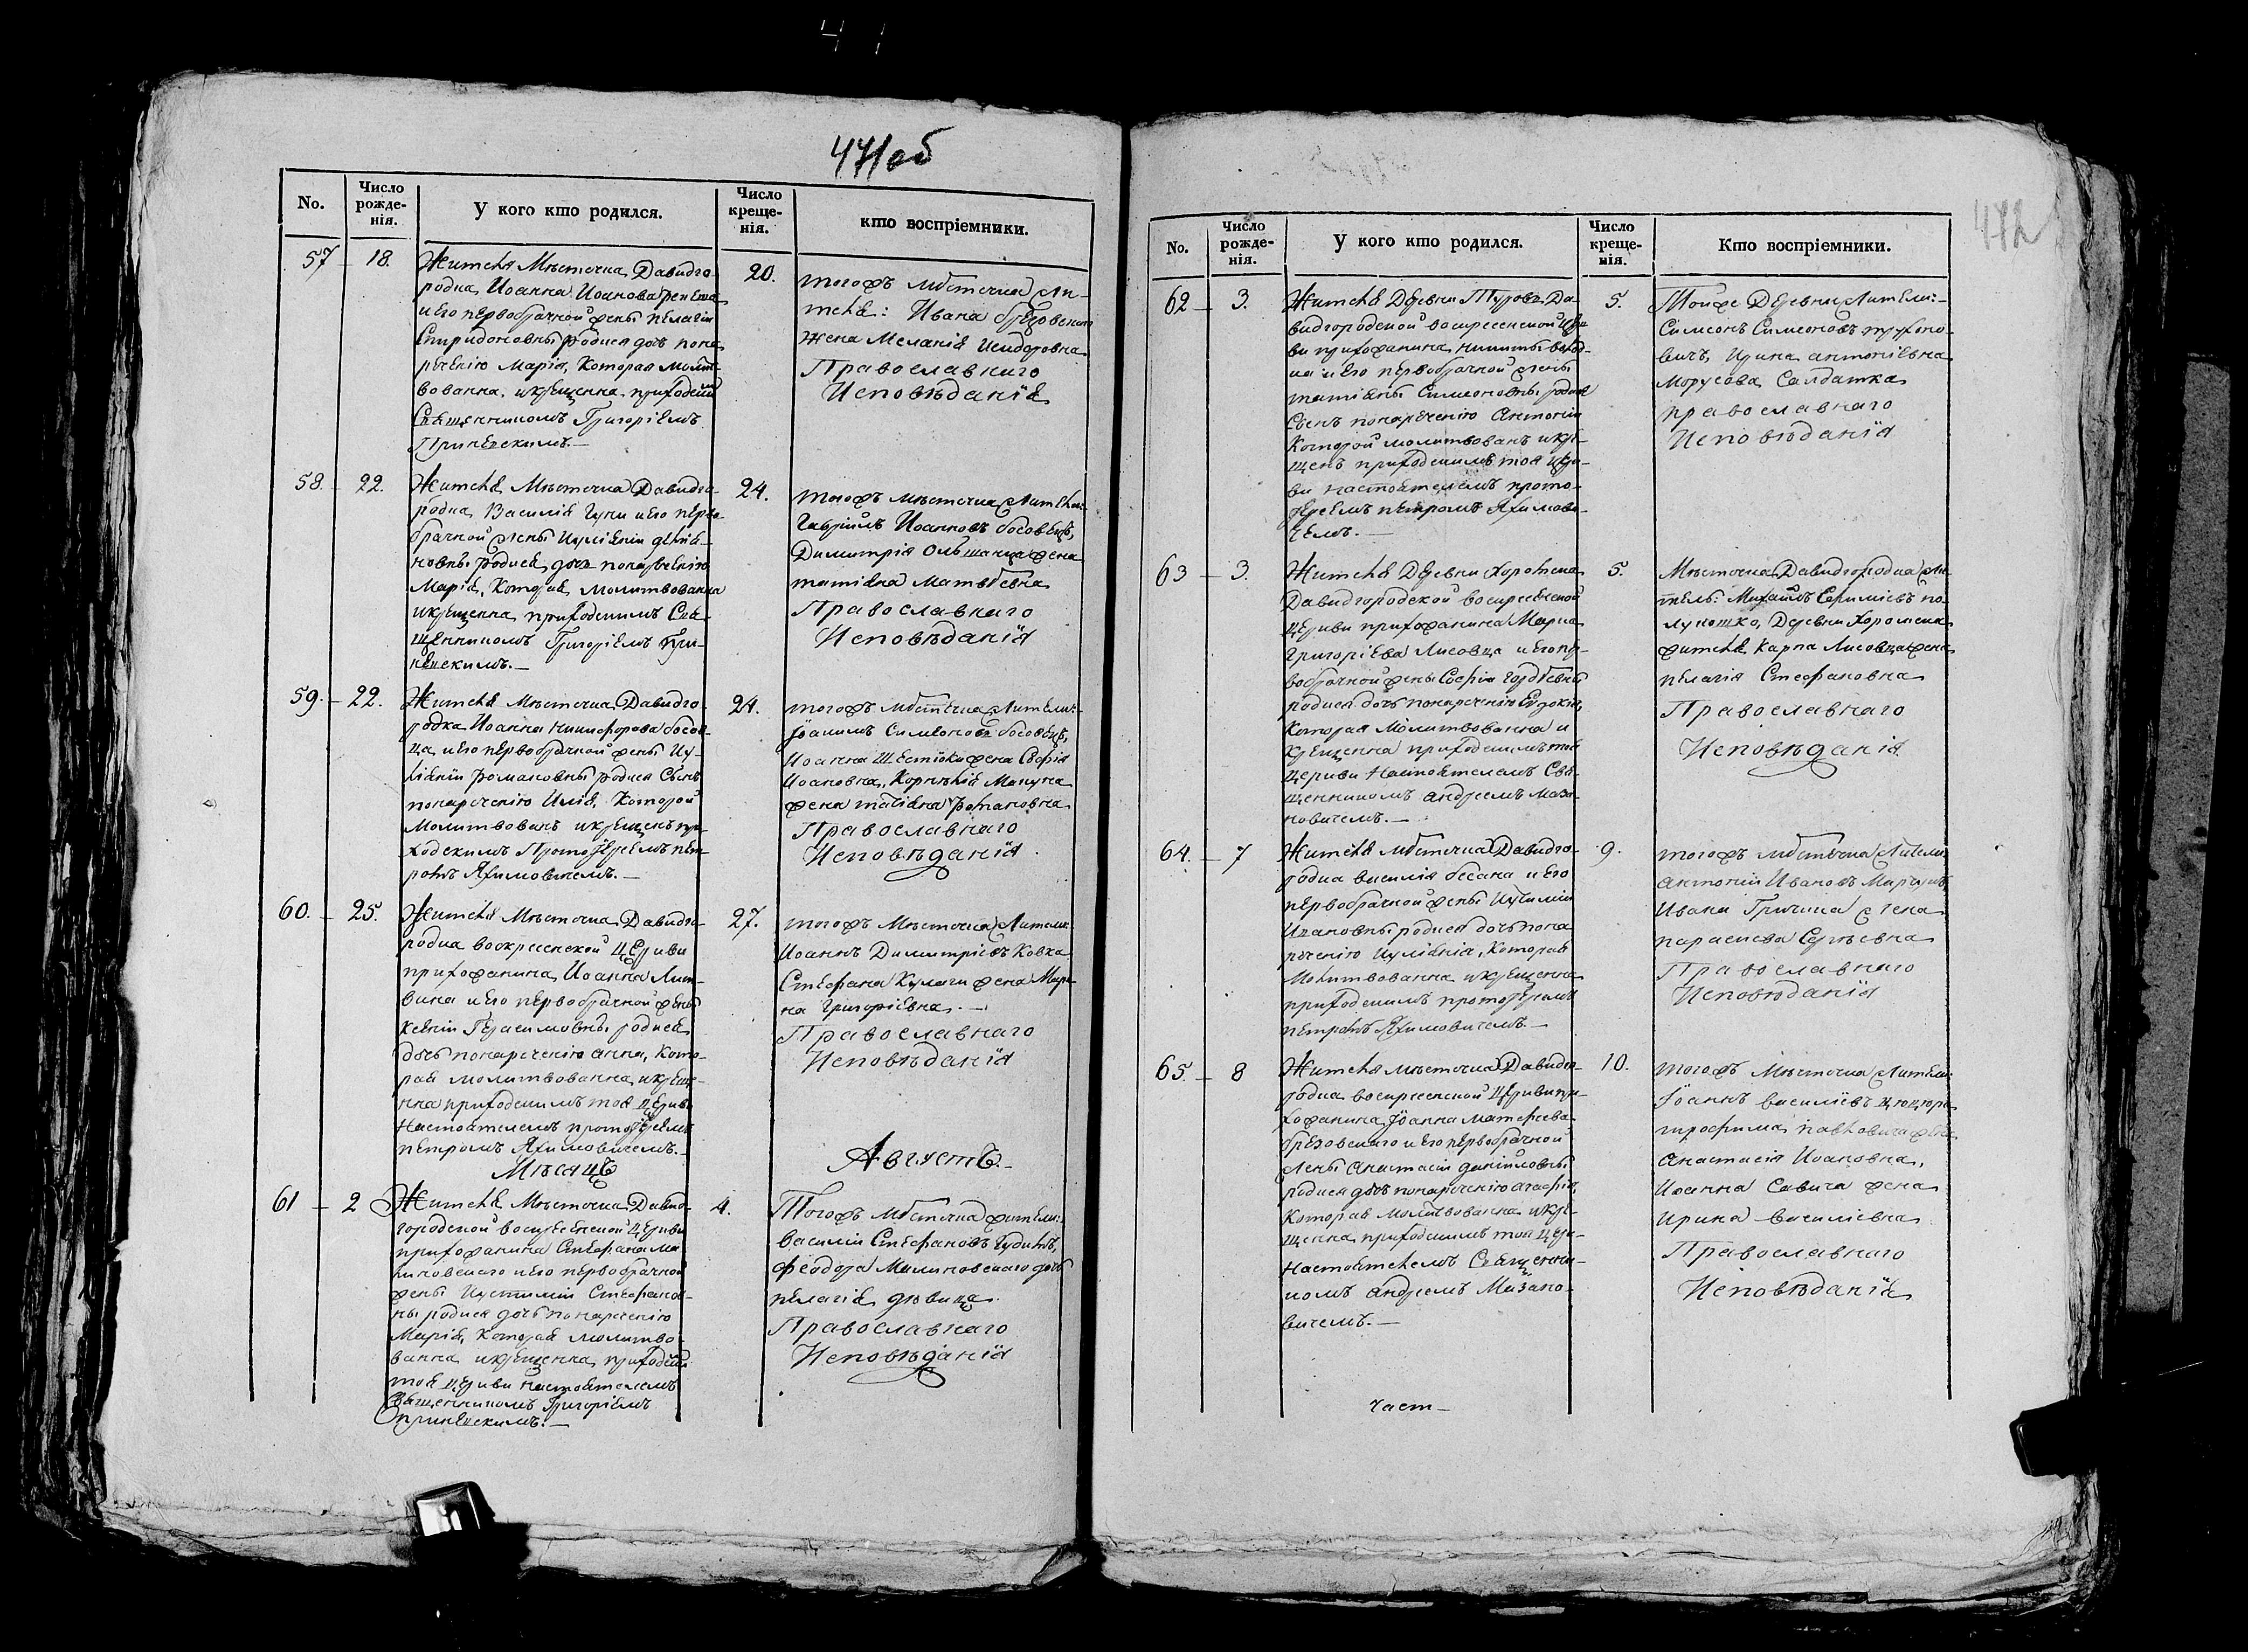 471об
No.
Число рожде-нія.
У кого кто родился.
Число креще-нія.
кто воспріемники.
57 – 18.
Жителя Мѣсточка Давидго-
родка Иоанна Иоанова
и его первобрачной жены Пелагіи
Спиридоновны родися дочь пона
речению Марія, Которая молит-
вованна, и крещенна приходскимъ
Священникомъ Григоріемъ
20.
тогожъ мѣсточка жи-
теля: Ивана
жена Меланія Исидоровна
Православнаго
Исповѣданія
58. – 22.
Жителя Мѣсточка Давидго-
родка Василія и его перво-
брачной жены
новны родися дочь понаречению
Марія, Которая молитвованна
и крещенна приходскимъ Свя-
щенникомъ Григоріемъ
24.
тогожъ мѣсточка жители:
Гавріилъ Иоанновъ босовецъ,
Димитрія Ольшанца жена
татіана Матвѣевна
Православнаго
Исповѣданія
59. – 22.
Жителя Мѣсточка Давидго-
родка Иоанна Никифорова босов-
ца и его первобрачной жены Иу-
ліаніи Романовны родися Сынъ
понаречению Илія, Которой
Молитвованъ и крещенъ при-
ходскимъ Протоіереемъ Пет-
ромъ Яхимовичемъ. –
24.
тогожъ мѣсточка жители:
Іоакимъ Симеоновъ босовецъ,
Иоанна жена Софія
Иоановна, Корнилія
жена татіана Романовна
Православнаго
Исповѣданія
60. – 25.
Жителя Мѣсточка Давидго-
родка воскресенской Церкви
прихожанина Иоанна Лит-
вина и его первобрачной жены
Ксеніи Герасимовны родися
дочь понаречению анна, Кото-
рая молитвованна и креще-
нна приходскимъ тоя Церкви
Настоятелемъ протоіереемъ
петромъ Яхимовичемъ. –
27.
тогожъ Мѣсточка жители:
Иоаннъ Димитріевъ Ковка
Стефана Кулаги жена Мари-
на Григоріевна. –
Православнаго
Исповѣданія
Мѣсяцъ
Августъ. –
61 – 2
Жителя Мѣсточка Давид-
городской воскресенской Церкви
прихожанина Стефана Ма-
линовскаго и его первобрачной
жены Иустиніи Стефано-
вны родися дочь понаречению
Марія, Которая молитво-
ванна и крещенна приходскимъ
тоя Церкви настоятелемъ
Священникомъ Григоріемъ
4.
Тогожъ мѣсточка жители:
василій Стефановъ
Феодора Малиновскаго дочь
пелагія дѣвица
Православнаго
Исповѣданія
472
No.
Число рожде-нія.
У кого кто родился.
Число креще-нія.
Кто воспріемники.
62 – 3.
Жителя Деревни Туровъ Да-
видгородской воскресенской Церк-
ви прихожанина никиты
и его первобрачной жены
татіаны Симеоновны родися
Сынъ понаречению Антоній
Которой молитвованъ и кре-
щенъ приходскимъ тоя Церк-
ви настоятелемъ прото-
іереемъ петромъ Яхимови-
чемъ. –
5.
Тойже Деревни жители:
Симеонъ Симеоновъ
вичъ, Ирина антоніевна
Морусова Салдатка
православнаго
Исповѣданія
63 – 3.
Жителя Деревни Хоромска
Давидгородской воскресенской
Церкви прихожанина Марка
Григоріева Лисовца и его пер-
вобрачной жены Софіи
родися дочь понаречению Евдокія,
Которая Молитвованна и
Крещенна приходскимъ тоя
Церкви Настоятелемъ Свя-
щенникомъ андреемъ Маза-
новичемъ. –
5.
Мѣсточка Давидгородка жи-
тель: Михаилъ по-
лукошко, Деревни Хоромска
жителя Карпа Лисовца жена
пелагія Стефановна
Православнаго
Исповѣданія
64. – 7
Жителя мѣсточка Давидго-
родка василія бесана и его
первобрачной жены
Ивановны родися дочь пона
речению Иуліанія, Которая
Молитвованна и крещенна
приходскимъ протоіереемъ
петромъ Яхимовичемъ. –
9.
тогожъ мѣсточка жители:
антоній Ивановъ
Ивана Гричина жена
параскева Сергѣевна
Православнаго
Исповѣданія
65. – 8
Жителя мѣсточка Давидго-
родка воскресенской Церкви при-
хожанина Іоанна Матфеева
брезовскаго и его первобрачной
жены Анастасіи даніиловны
родися дочь понаречению агафія,
Которая Молитвованна и кре-
щенна приходскимъ тоя Церк-
Настоятелемъ Священни-
комъ андреемъ Мазано-
вичемъ. –
10.
тогожъ Мѣсточка жители:
Іоаннъ василіевъ
трофима павловича жена
Анастасія Иоановна,
Иоанна Савича жена
Ирина василіевна
Православнаго
Исповѣданія
част –